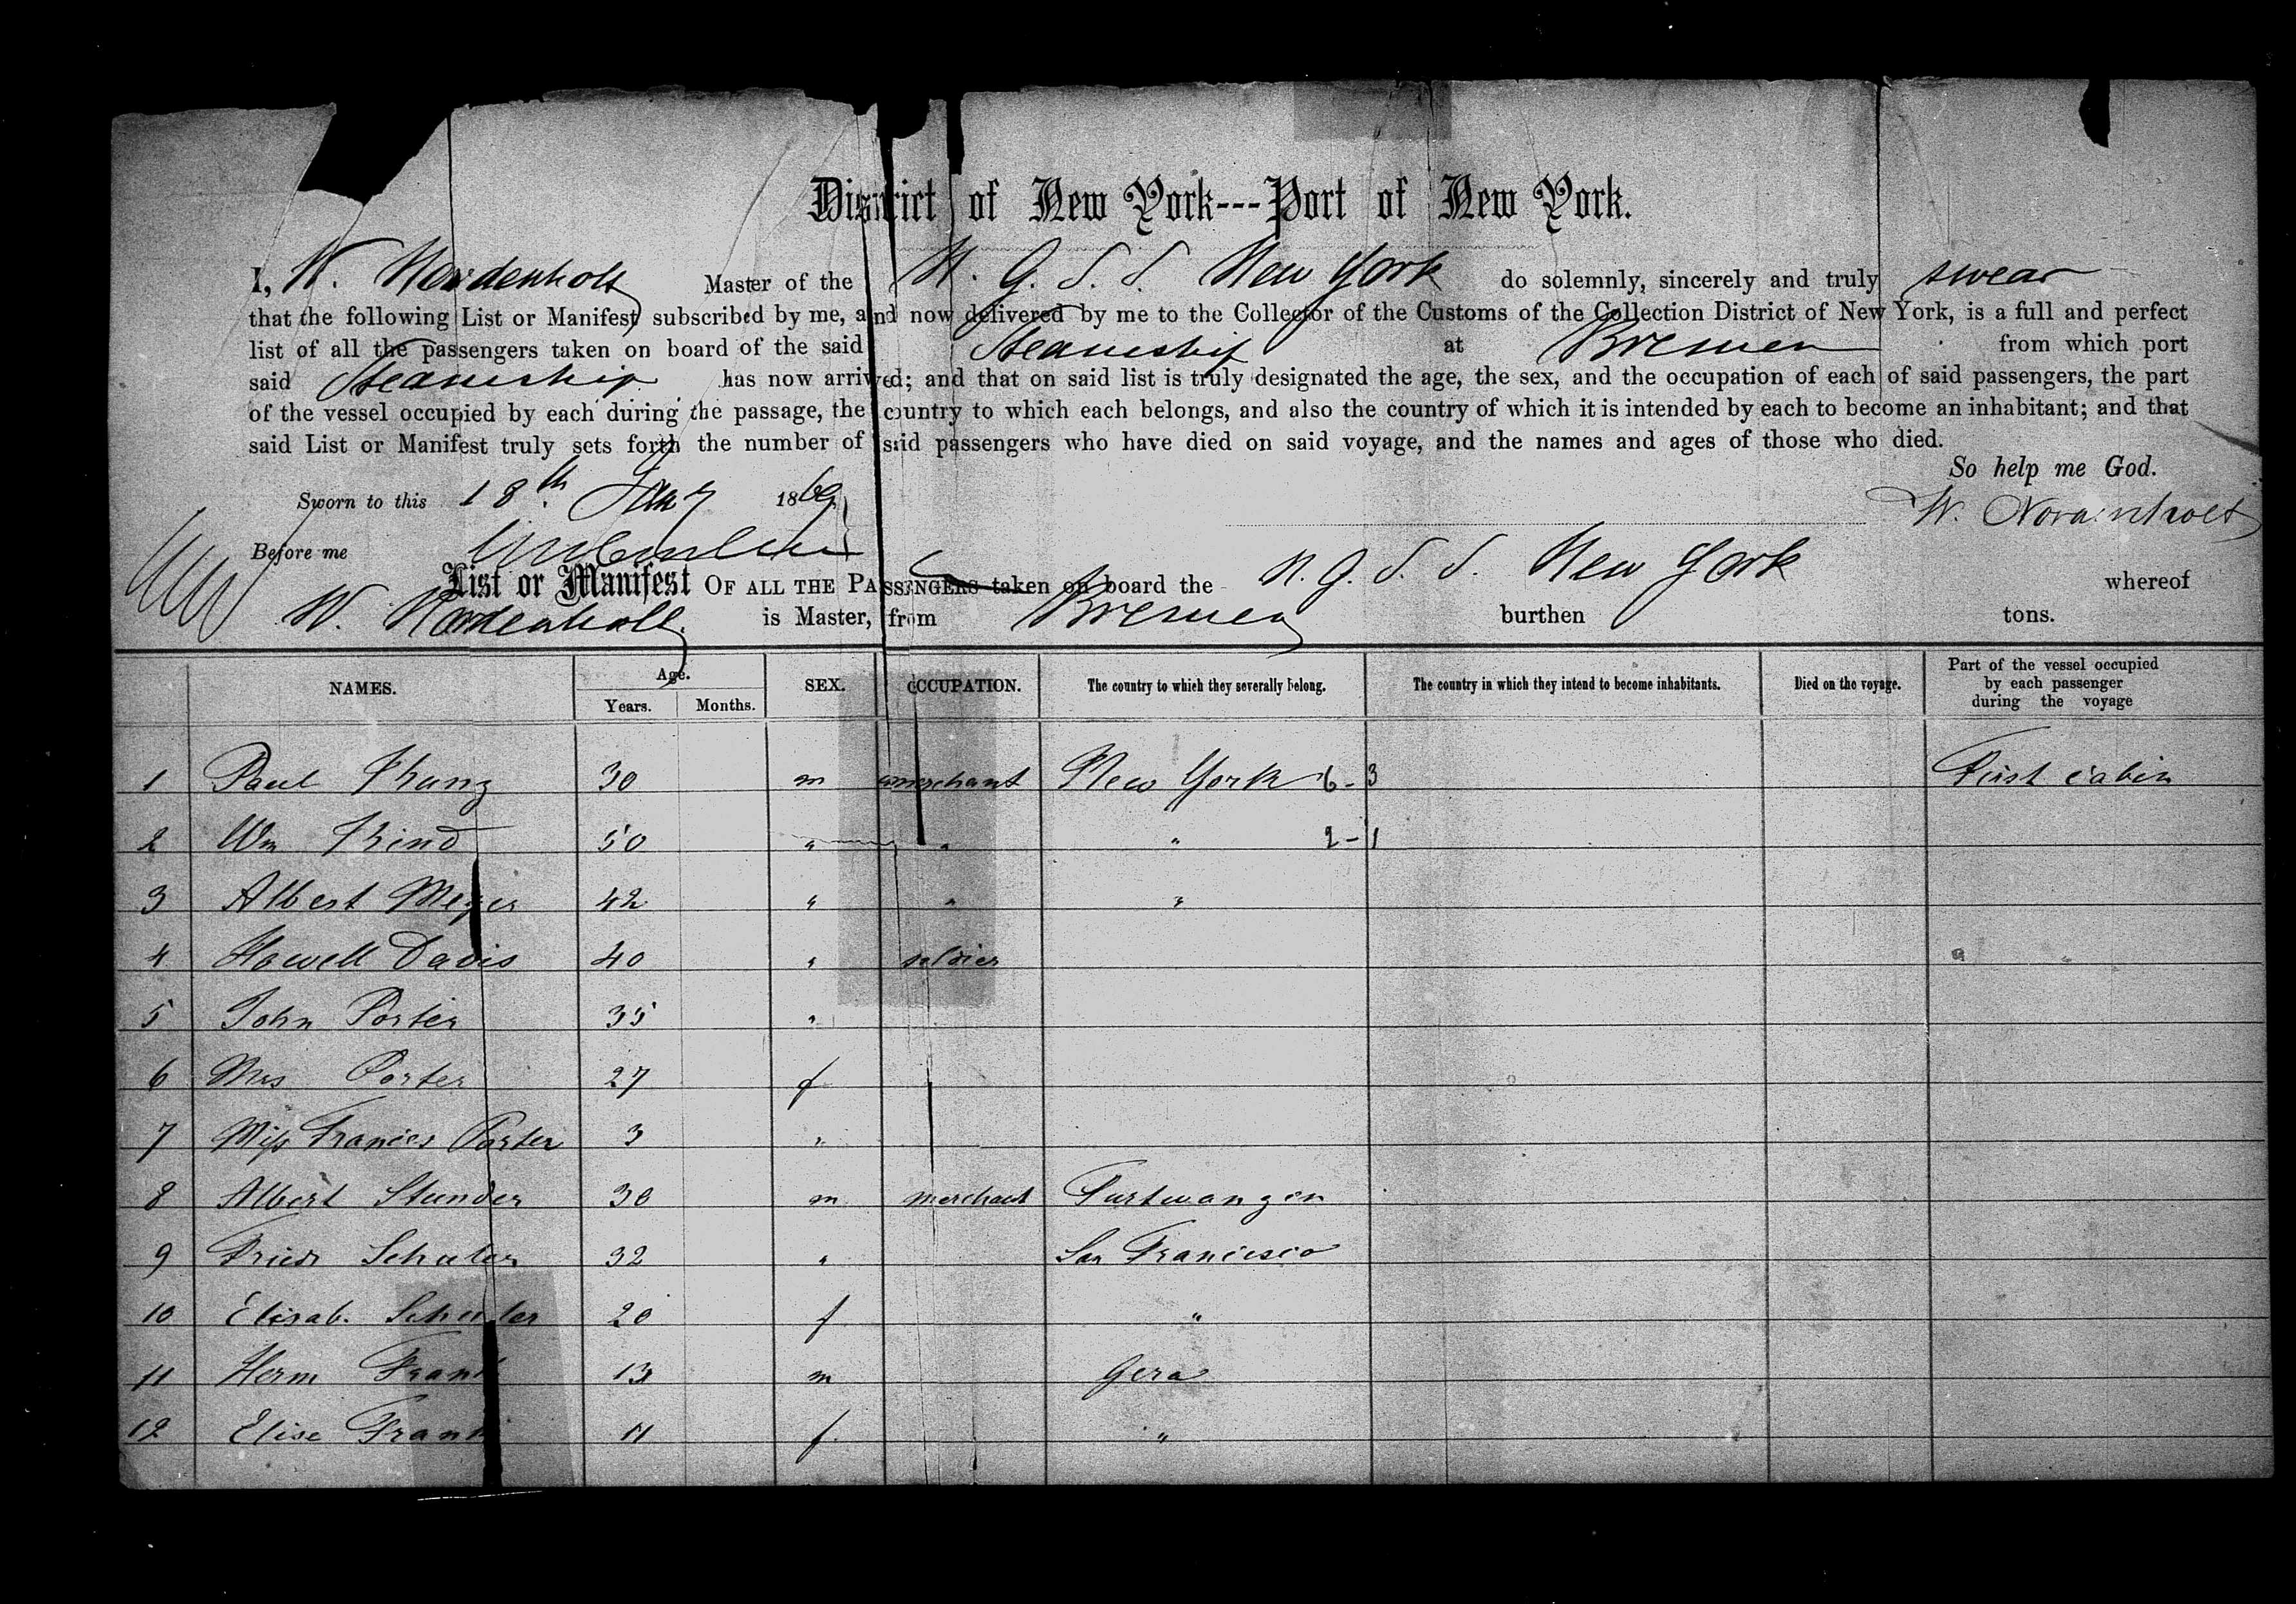 District of New York---Port of New York.
I, W. Nordenholt Master of the N. G. S. S. New York do solemnly, sincerely and truly swear
that the following List or Manifest subscribed by me, and now delivered by me to the Collector of the Customs of the Collection District of New York, is a full and perfect
list of all the passengers taken on board of the said Steamship at Bremen from which port
said Steamship has now arrived; and that on said list is truly designated the age, the sex, and the occupation of each of said passengers, the part
of the vessel occupied by each during the passage, the country to which each belongs, and also the country of which it is intended by each to become an inhabitant; and that
said List or Manifest truly sets forth the number of said passengers who have died on said voyage, and the names and ages of those who died.
So help me God.
Sworn to this 18th Jany 1869
W. Nordenholt
Before me
List or Manifest OF ALL THE PASSENGERS taken on board the N. G. S. S. New York whereof
W. Nordenholt is Master, from Bremen burthen tons.
NAMES. Age. Years. Months. SEX. OCCUPATION. The country to which they severally belong. The country in which they intend to become inhabitants. Died on the voyage. Part of the vessel occupied by each passenger during the voyage
1 Paul 30 m merchant New York 6-3 First cabin
2 Wm 50 " " " 2-1
3 Albert Meyer 42 " " "
4 Howell Davis 40 " soldier
5 John Porter 35 "
6 Mrs Porter 27 f
7 Miss Frances Porter 3 "
8 Albert Stunder 30 m merchant Furtwangen
9 Friedr Schuler 32 " San Francisco
10 Elisab. Schuler 20 f "
11 Herm Frank 13 m Gera
12 Elise Frank 11 f "